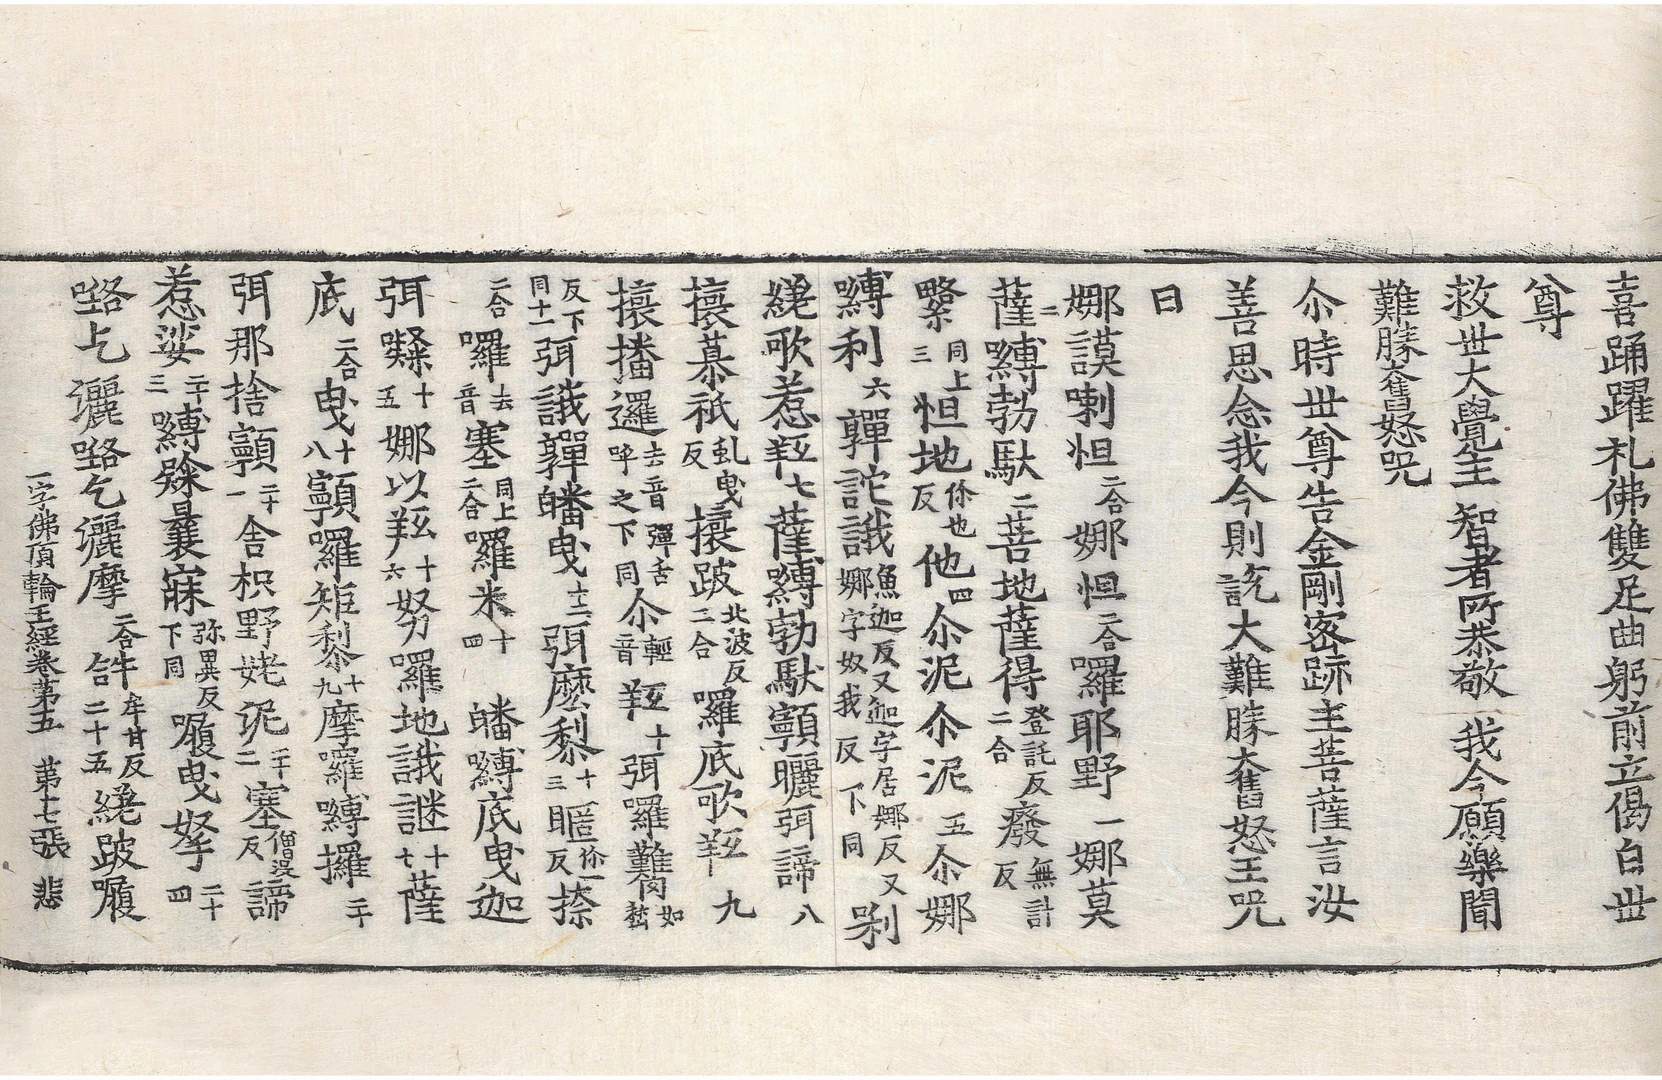 喜踊躍礼佛雙足曲躬前立偈白世
尊
救世大覺主 智者所恭敬 我今願樂聞
難勝奮怒咒
尒時世尊告金剛密跡主菩薩言汝
善思念我今則說大難勝奮怒王咒
曰
娜謨喇怛二合娜怛二合囉耶野一娜莫
薩縛勃馱二菩地薩得登託反二合廢無計反
同上三怛地你也反他四尒泥尒泥五尒娜
嚩利六鞞詑誐魚迦反又迦字居娜反又娜字奴我反下同剁
繞歌惹羟七薩嚩勃馱顟曬弭諦八
攘慕祇虬曳反攘跛北波反二合囉底歌羟九
攘播邏去音彈舌呼之下同尒輕音羟十弭囉難如
反下同十一弭誐鞞皤曳十二弭麽黎十三暱你一反捺
二合囉去音塞同上二合囉米十四皤嚩底曳迦
弭十五娜以羟十六努羅地誐謎十七薩
底二合曳十八顟囉矩黎十九摩囉嚩攞二十
弭那捨顟二十一舍枳野姥泥二十二塞僧沒反諦
惹娑二十三嚩曩寐弥異反下同履曳拏二十四
囉囉摩二合牟甘反二十五繞跛履
一字佛頂輪王經卷第五 第十七張 悲